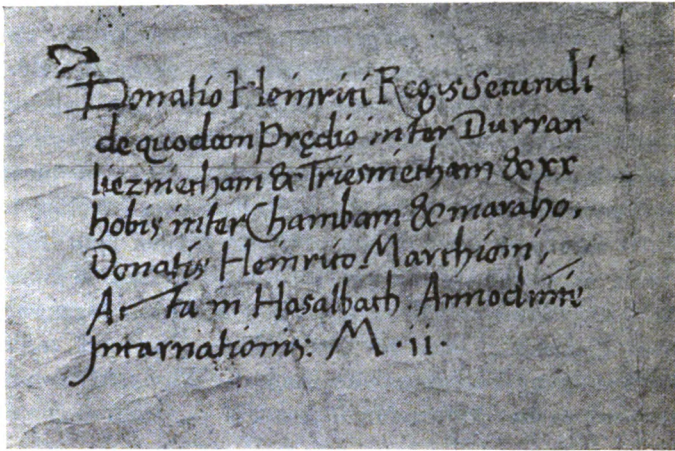 Donatio Heinrici Regis Secundi
de quodam Prędio inter Durran
liezniecham & Triesniecham & xx
hobis inter Chambam & maraho,
Donatis Heinrico Marchioni,
Acta in Hasalbach. Anno dn̄ice
Incarnationis: M.ii.